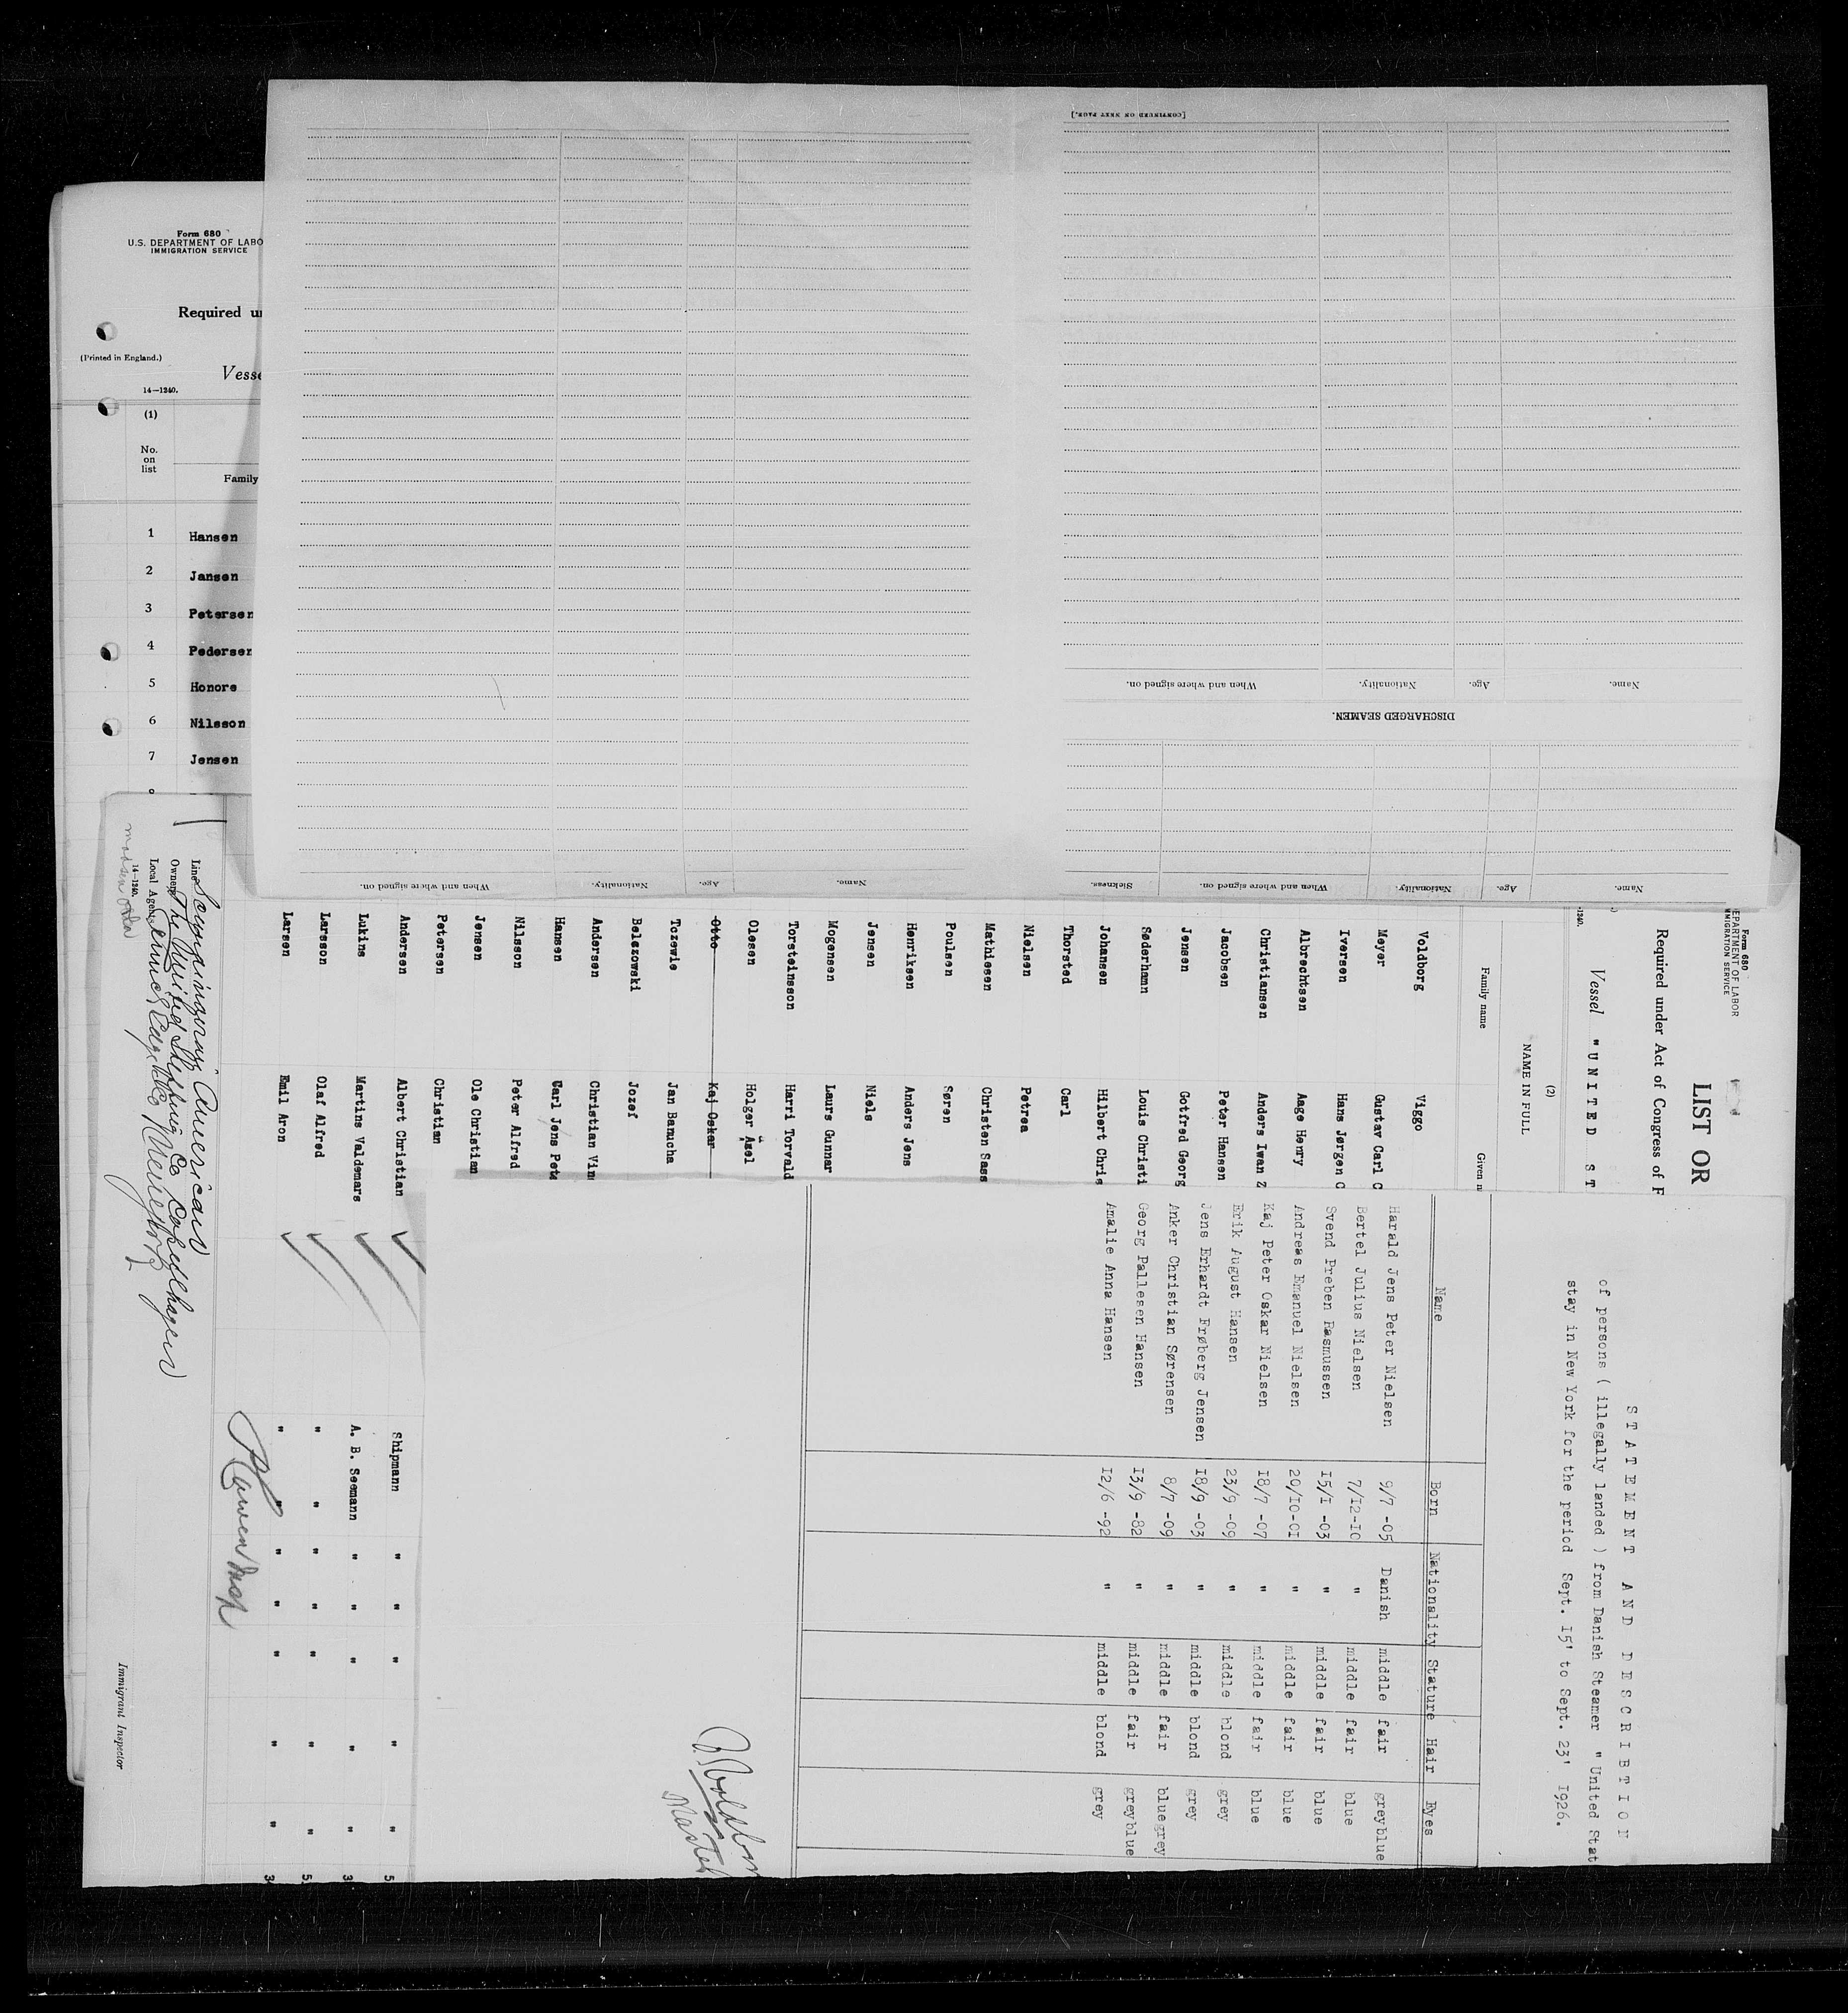 Form 680
U.S. DEPARTMENT OF LABO
IMMIGRATION SERVICE
Required u
(Printed in England.)
Vesse
14—1240.
(1)
No.
on
list
Family
1 Hansen
2 Jansen
3 Petersen
4 Pedersen
5 Honore
6 Nilsson
7 Jensen
8
[CONTINUED ON NEXT PAGE.]
Name. Age. Nationality. When and where signed on.
DISCHARGED SEAMEN.
Name. Age. Nationality. When and where signed on. Sickness.
Name. Age. Nationality. When and where signed on.
Form 680
EPARTMENT OF LABOR
MMIGRATION SERVICE
LIST OR
Required under Act of Congress of F
Vessel "UNITED ST
1240.
(2)
NAME IN FULL
Family name Given n
Voldborg Viggo
Meyer Gustav Carl C
Iversen Hans Jørgen C
Albrechtsen Aage Henry
Christiansen Anders Iwan Z
Jacobsen Peter Hansen
Jensen Gotfred Georg
Søderhamn Louis Christi
Johansen Hilbert Chris
Thorsted Carl
Nielsen Petrea
Mathiesen Christen Sass
Poulsen Søren
Henriksen Anders Jens
Jensen Niels
Mogensen Laurs Gunnar
Torsteinsson Harri Torvald
Olesen Holger Axel
Otto Kaj Oskar
Tozewie Jan Banucha
Belszowski Jozef
Andersen Christian Vin
Hansen Carl Jens Pete
Nilsson Peter Alfred
Jensen Ole Christian
Petersen Christian
Andersen Albert Christian Shipmann " " " " " 5
Lukins Martins Valdemars A. B. Seemann " " " " " 3
Larsson Olaf Alfred " " " " " " " 5
Larsen Emil Aron " " " " " " " 3
Line Scandinavian American
Owners The United Shipping Co Copenhagen
Local Agents
14—1240.
Immigrant Inspector
STATEMENT AND DESCRIBTION
of persons ( illegally landed ) from Danish Steamer " United Stat
stay in New York for the period Sept. 15' to Sept. 23' 1926.
Name Born Nationality Stature Hair Eyes
Harald Jens Peter Nielsen 9/7 -05 Danish middle fair greyblue
Bertel Julius Nielsen 7/12-10 " middle fair blue
Svend Preben Rasmussen 15/1 -03 " middle fair blue
Andreas Emanuel Nielsen 20/10-01 " middle fair blue
Kaj Peter Oskar Nielsen 18/7 -07 " middle fair blue
Erik August Hansen 23/9 -09 " middle blond grey
Jens Erhardt Frøberg Jensen 18/9 -03 " middle blond grey
Anker Christian Sørensen 8/7 -09 " middle fair bluegrey
Georg Pallesen Hansen 13/9 -82 " middle fair greyblue
Amalie Anna Hansen 12/6 -92 " middle blond grey
Master